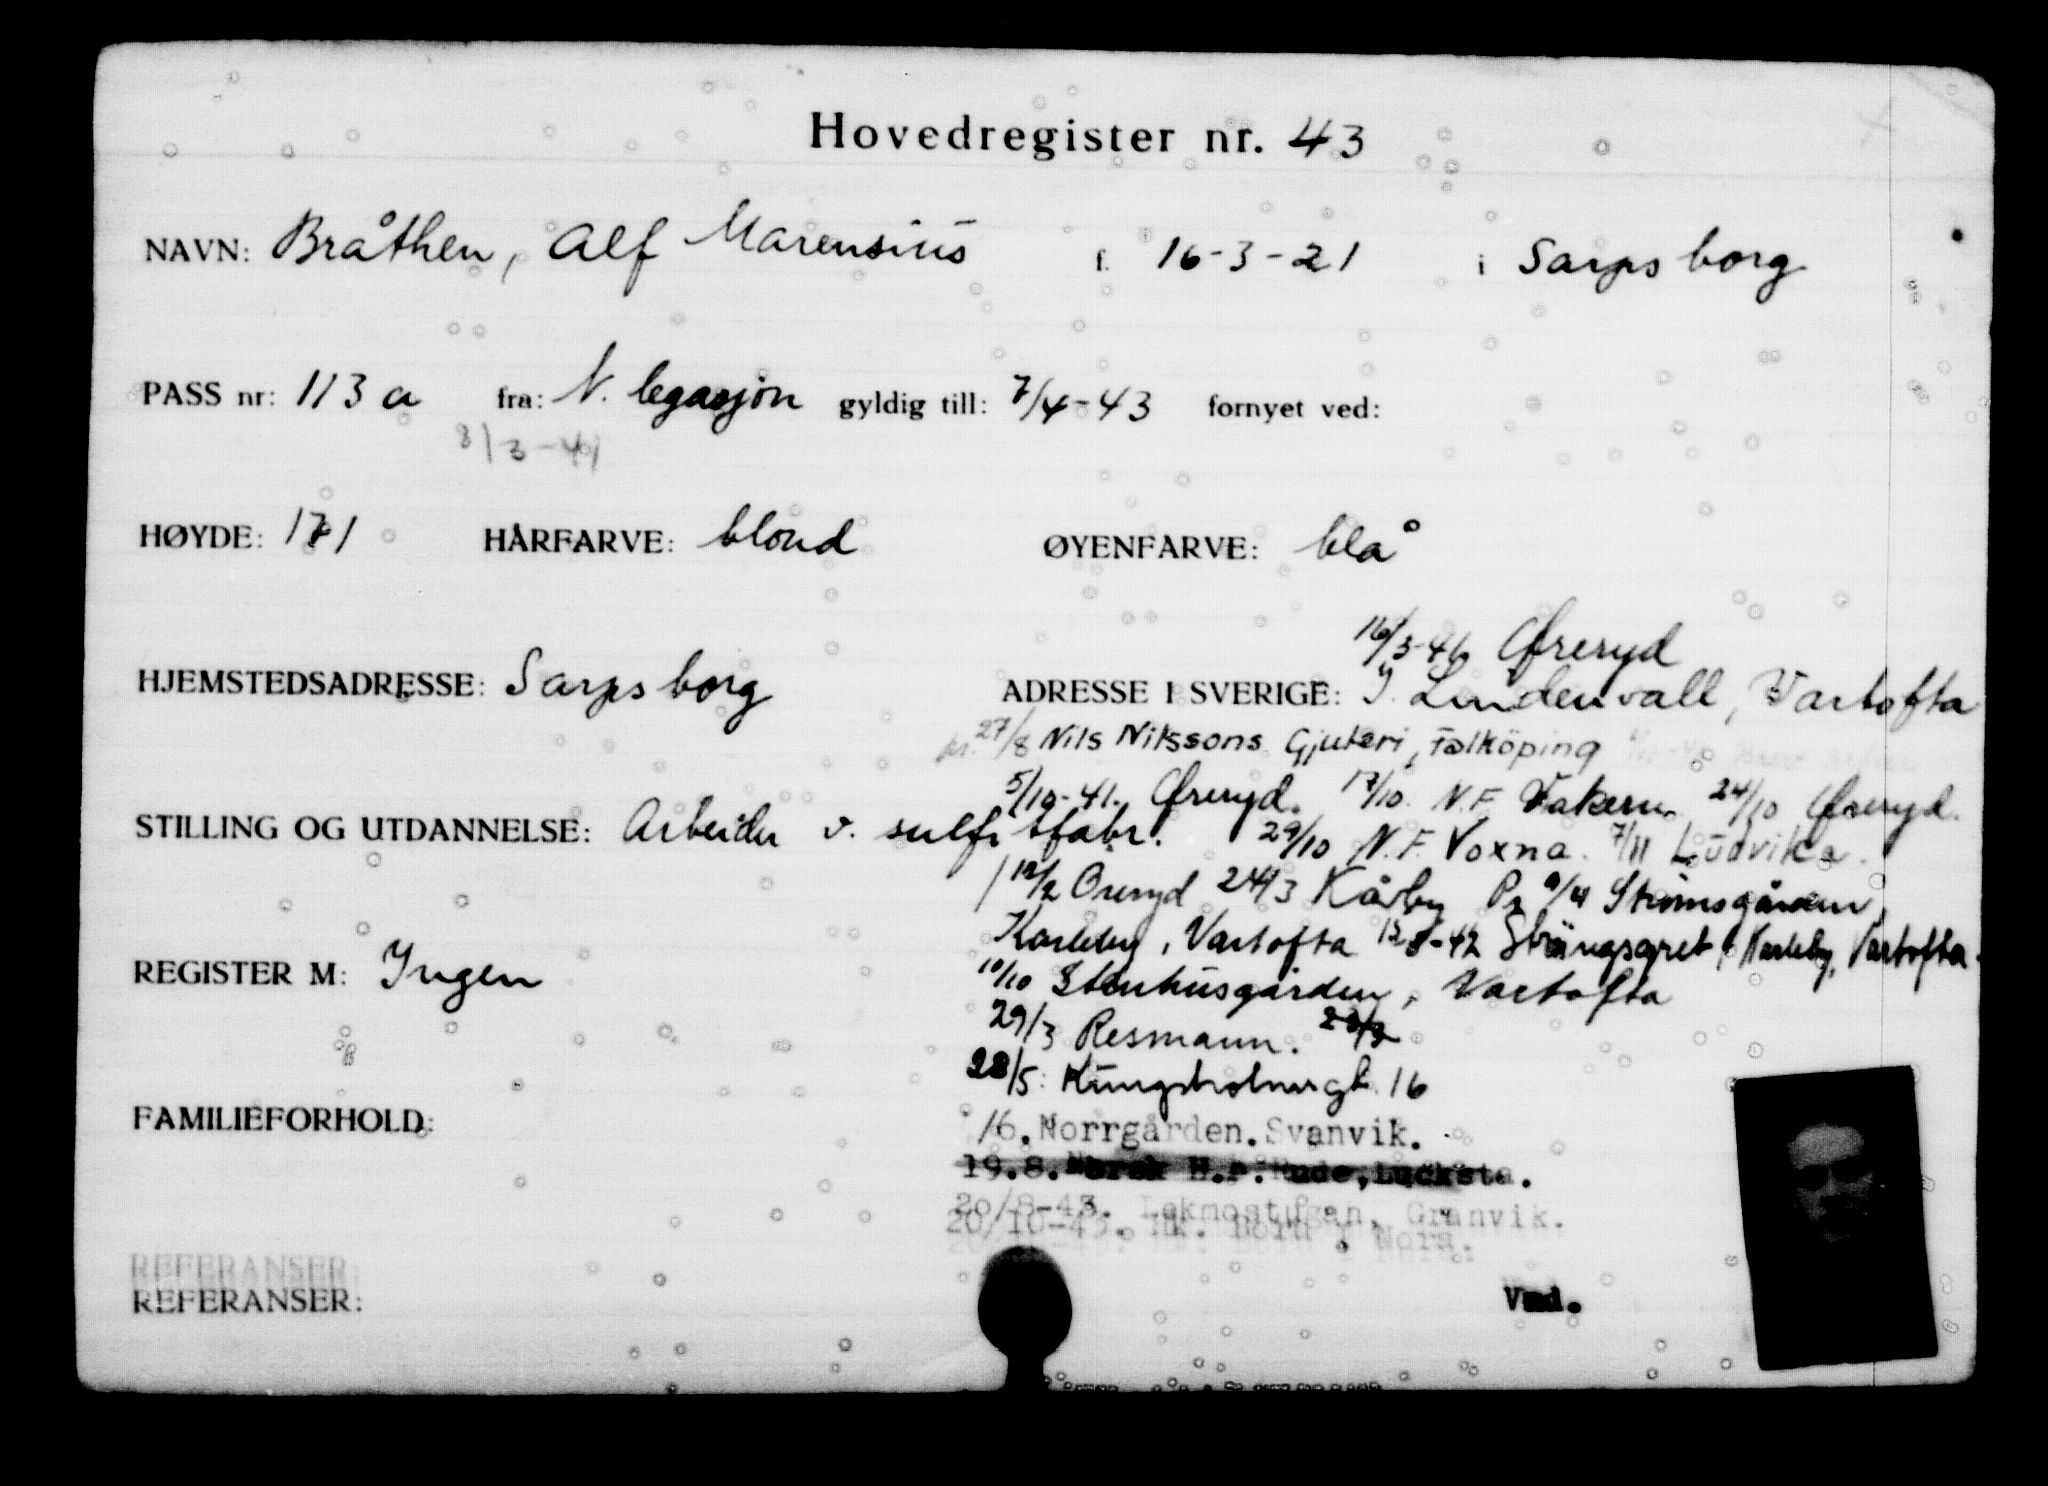 Hovedregister nr. 43
NAVN: Bråthen, Alf Marensius f. 16-3-21 i Sarpsborg
PASS nr: 113 a fra: N. legasjon gyldig till: 7/4-43 fornyet ved:
8/3-41
HØYDE: 171 HÅRFARVE: blond ØYENFARVE: blå
16/3-46 Øreryd
HJEMSTEDSADRESSE: Sarpsborg ADRESSE I SVERIGE: Lindenvall, Vartofta
27/8 Nils Nilssons Gjuteri, Falköping
5/10-41. Øreryd. 17/10. N.F. Vakern. 24/10 Øreryd.
STILLING OG UTDANNELSE: Arbeider v. sulfitfabr. 29/10 N.F. Voxna. 7/11 Ludvika.
12/2 Öreryd 24/3 Kårby 9/4 Strömsgården,
Karleby, Vartofta Karleby, Vartofta.
REGISTER M: Ingen 10/10 Stenhusgården, Vartofta
29/3 Resmann.
28/5: Kungsholmsgt. 16
FAMILIEFORHOLD: 16. Norrgården. Svanvik.
19.8. Norsk H.P. Rude, Lucksta.
20/8-43. Lekmostugan, Granvik.
20/10-43. Hk. Born i Nora.
REFERANSER
REFERANSER: Vmd.